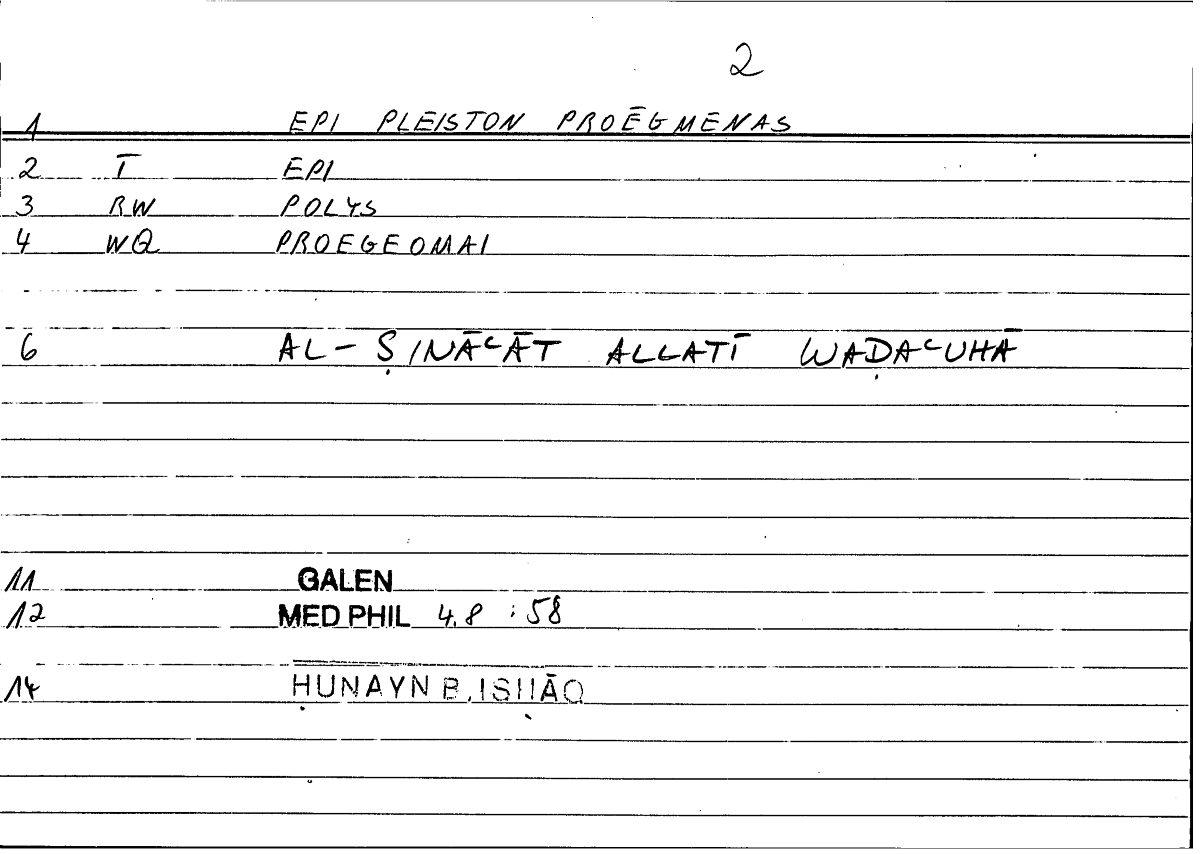 2
1 EPI PLEISTON PROĒGMENAS
2 T̄ EPI
3 RW POLYS
4 WQ PROEGEOMAI
6 AL-ṢINĀʿĀT ALLATĪ WAḌAʿUHĀ
11 GALEN
12 MED PHIL 4.8 : 58
14 ḤUNAYN B. ISḤĀQ